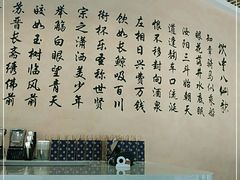 饮中八仙歌
知章骑马似乘船
眼花落井水底眠
汝阳三斗始朝天
道逢麴车口流涎
恨不移封向酒泉
左相日兴费万钱
饮如长鲸吸百川
衔杯乐圣称世贤
宗之潇洒美少年
举觞白眼望青天
皎如玉树临风前
苏晋长斋绣佛前